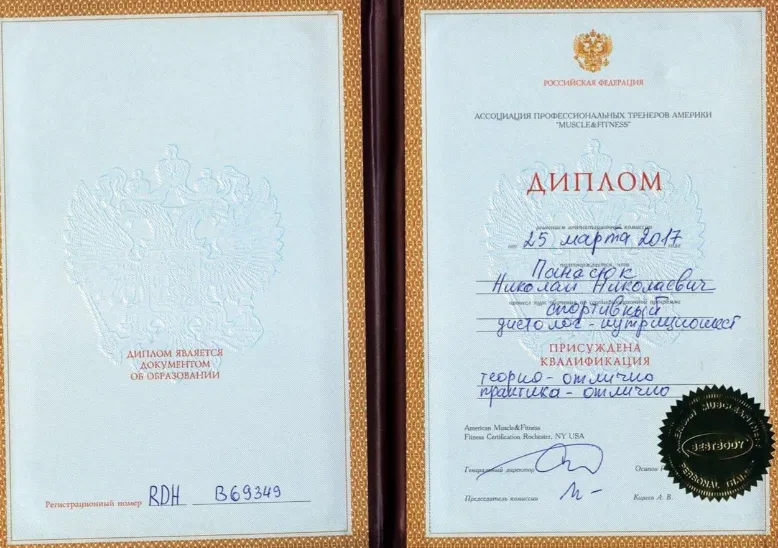 ДИПЛОМ ЯВЛЯЕТСЯ
ДОКУМЕНТОМ
ОБ ОБРАЗОВАНИИ
Регистрационный номер RDH B69349
РОССИЙСКАЯ ФЕДЕРАЦИЯ
АССОЦИАЦИЯ ПРОФЕССИОНАЛЬНЫХ ТРЕНЕРОВ АМЕРИКИ
"MUSCLE&FITNESS"
ДИПЛОМ
решением аттестационной комиссии
от 25 марта 2017 года
подтверждается, что
Панасюк
Николай Николаевич
спортивный
диетолог-нутриционист
ПРИСУЖДЕНА
КВАЛИФИКАЦИЯ
теория - отлично
практика - отлично
American Muscle&Fitness
Fitness Certification Rochester, NY USA
Генеральный директор
Председатель комиссии Карсев А. В.
BESTBODY
PERSONAL